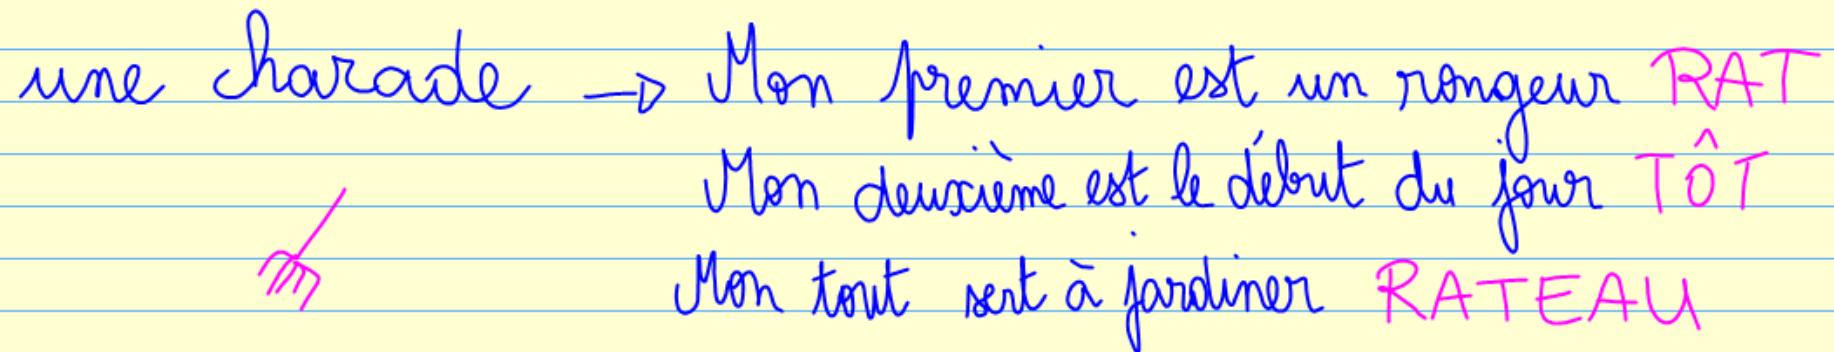 une charade → Mon premier est un rongeur RAT
Mon deuxième est le début du jour TÔT
Mon tout sert à jardiner RATEAU